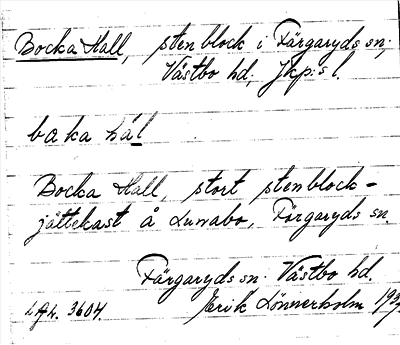 Bocka Hall, stenblock i Färgaryds sn;
Västbo hd; Jkp:s l.
baka hál
Bocka Hall, stort stenblock -
jättekast å Lunnabo, Färgaryds sn.
Färgaryds sn. Västbo hd.
Erik Lönnerholm
3604.